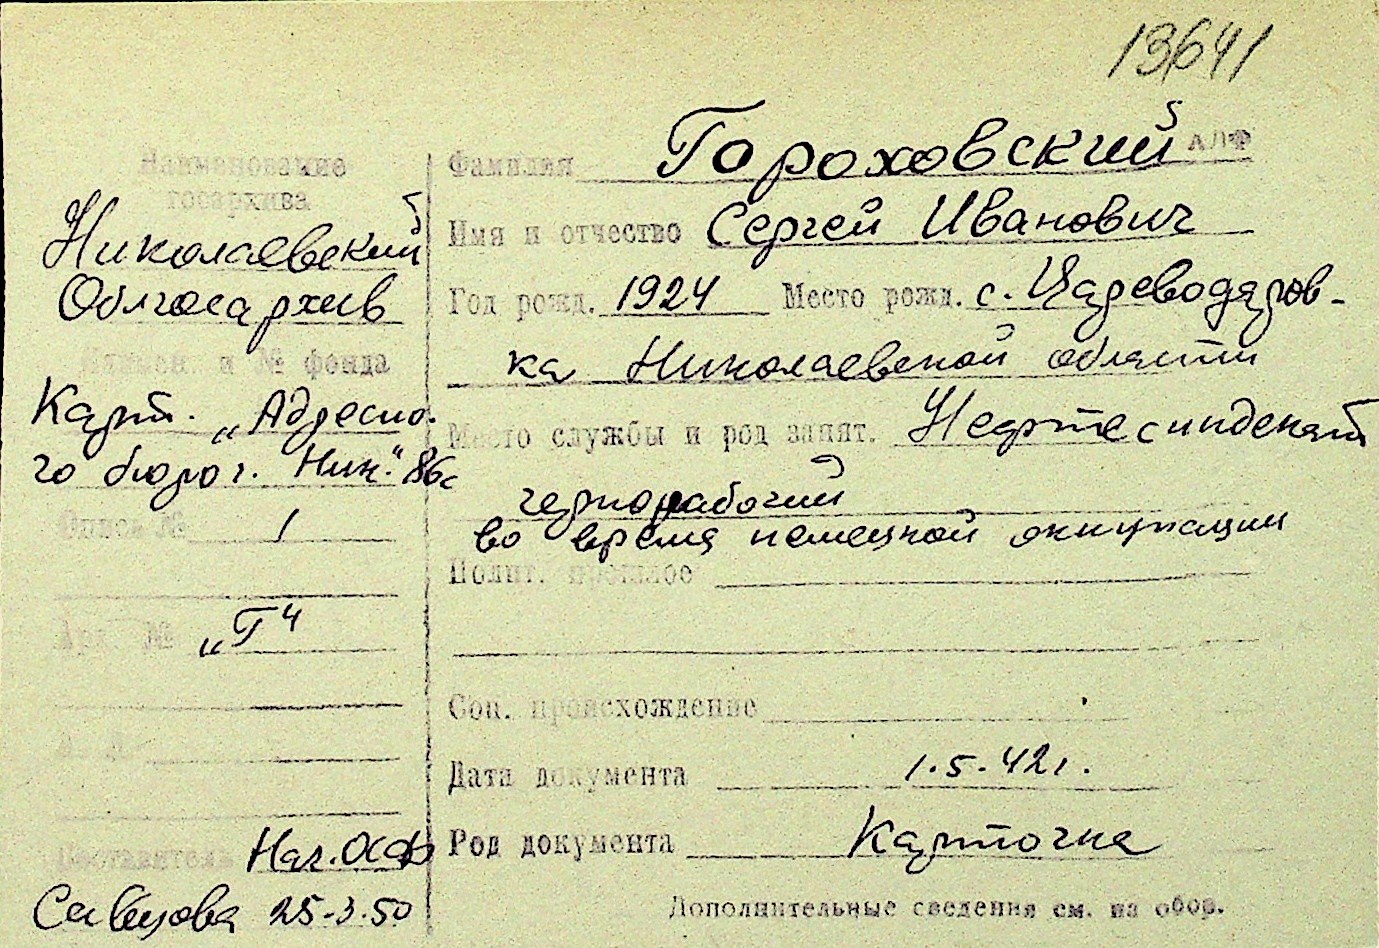 13641
Наименование
госархива
Николаевский
Облгосархив
Наимен. и № фонда
Карт. „Адресно-
го бюро г. Ник." 86с
Опись № 1
Арх. № „Г"
Составитель Нач. ОСФ
25-3-50
Фамилия Гороховский АЛФ
Имя и отчество Сергей Иванович
Год рожд. 1924 Место рожд. с. Цареводаров-
ка Николаевской области
Место службы и род занят. Нефтесиндекат
чернорабочий
во время немецкой оккупации
Полит. прошлое
Соц. происхождение
Дата документа 1.5.42г.
Род документа Карточка
Дополнительные сведения см. на обор.